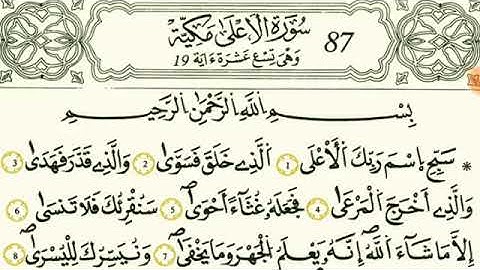 سُورَةُ الْأَعْلَىٰ مَكِّيَّة 87
وَهْيَ تِسْعَ عَشْرَةَ ءَايَة 19
بِسْمِ اللَّهِ الرَّحْمَٰنِ الرَّحِيمِ
* سَبِّحِ اِسْمَ رَبِّكَ اَلْأَعْلَى 1 اَلَّذِے خَلَقَ فَسَوَّىٰ 2 وَالَّذِے قَدَّرَ فَهَدَىٰ 3
وَالَّذِے أَخْرَجَ اَلْمَرْعَىٰ 4 فَجَعَلَهُۥ غُثَآءً أَحْوَىٰ 5 سَنُقْرِئُكَ فَلَا تَنسَىٰ 6
إِلَّا مَا شَآءَ اَللَّهُ إِنَّهُۥ يَعْلَمُ اَلْجَهْرَ وَمَا يَخْفَىٰ 7 وَنُيَسِّرُكَ لِلْيُسْرَىٰ 8